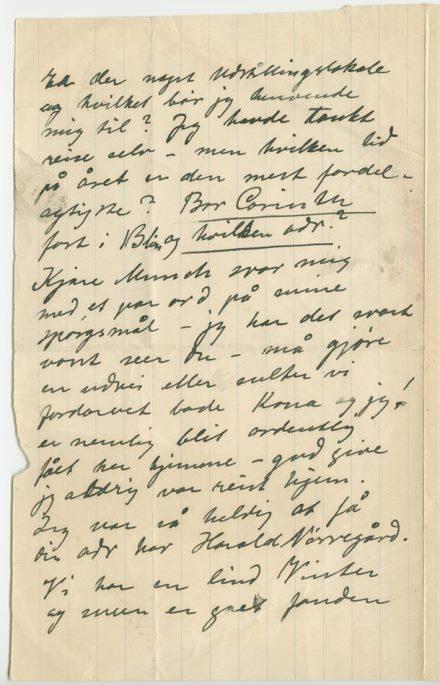 Er der noget Udstillingslokale
og hvilket bör jeg henvende
mig til? Jeg havde tænkt
reise selv – men hvilken tid
på året er den mest fordel-
agtigste? Bor Corinth
fort i Blin og hvilken adr.?
Kjære Munch svar mig
med et par ord på mine
spørgsmål – jeg har det svært
vont seer du – må gjøre
en udvei eller sulter vi
fordærvet både Kona og jeg!
er nemlig blit ordentlig
fået her hjemme – gud give
jeg aldrig var reist hjem.
Jeg var så heldig at få
din adr har Harald Nörregård.
Vi har en lind Vinter
og snuen er gået fanden